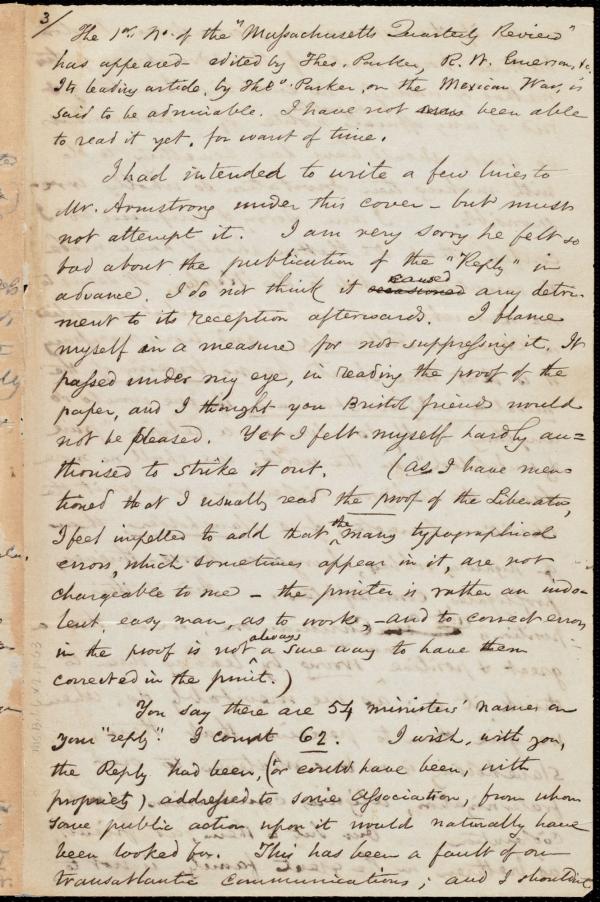 3/
The 1st No. of the "Massachusetts Quarterly Review"
has appeared - edited by Theo. Parker, R. W. Emerson, &c.
Its leading article, by Theo. Parker, on the Mexican War, is
said to be admirable. I have not been able
to read it yet, for want of time.
I had intended to write a few lines to
Mr. Armstrong under this cover - but must
not attempt it. I am very sorry he felt so
bad about the publication of the "Reply" in
advance. I do not think it occasioned caused any detri-
ment to its reception afterwards. I blame
myself in a measure for not suppressing it. It
passed under my eye, in reading the proof of the
paper, and I thought you Bristol friends would
not be pleased. Yet I felt myself hardly au=
thorised to strike it out. (As I have men-
tioned that I usually read the proof of the Liberator,
I feel impelled to add that the many typographical
errors, which sometimes appear in it, are not
chargeable to me - the printer is rather an indo-
lent, easy man, as to work, - and to correct errors
in the proof is not always a sure way to have them
corrected in the print.)
You say there are 54 ministers' names on
your "reply". I count 62. I wish, with you,
the Reply had been, (or could have been, with
propriety) addressed to some Association, from whom
some public action upon it would naturally have
been looked for. This has been a fault of our
transatlantic communications; and I should